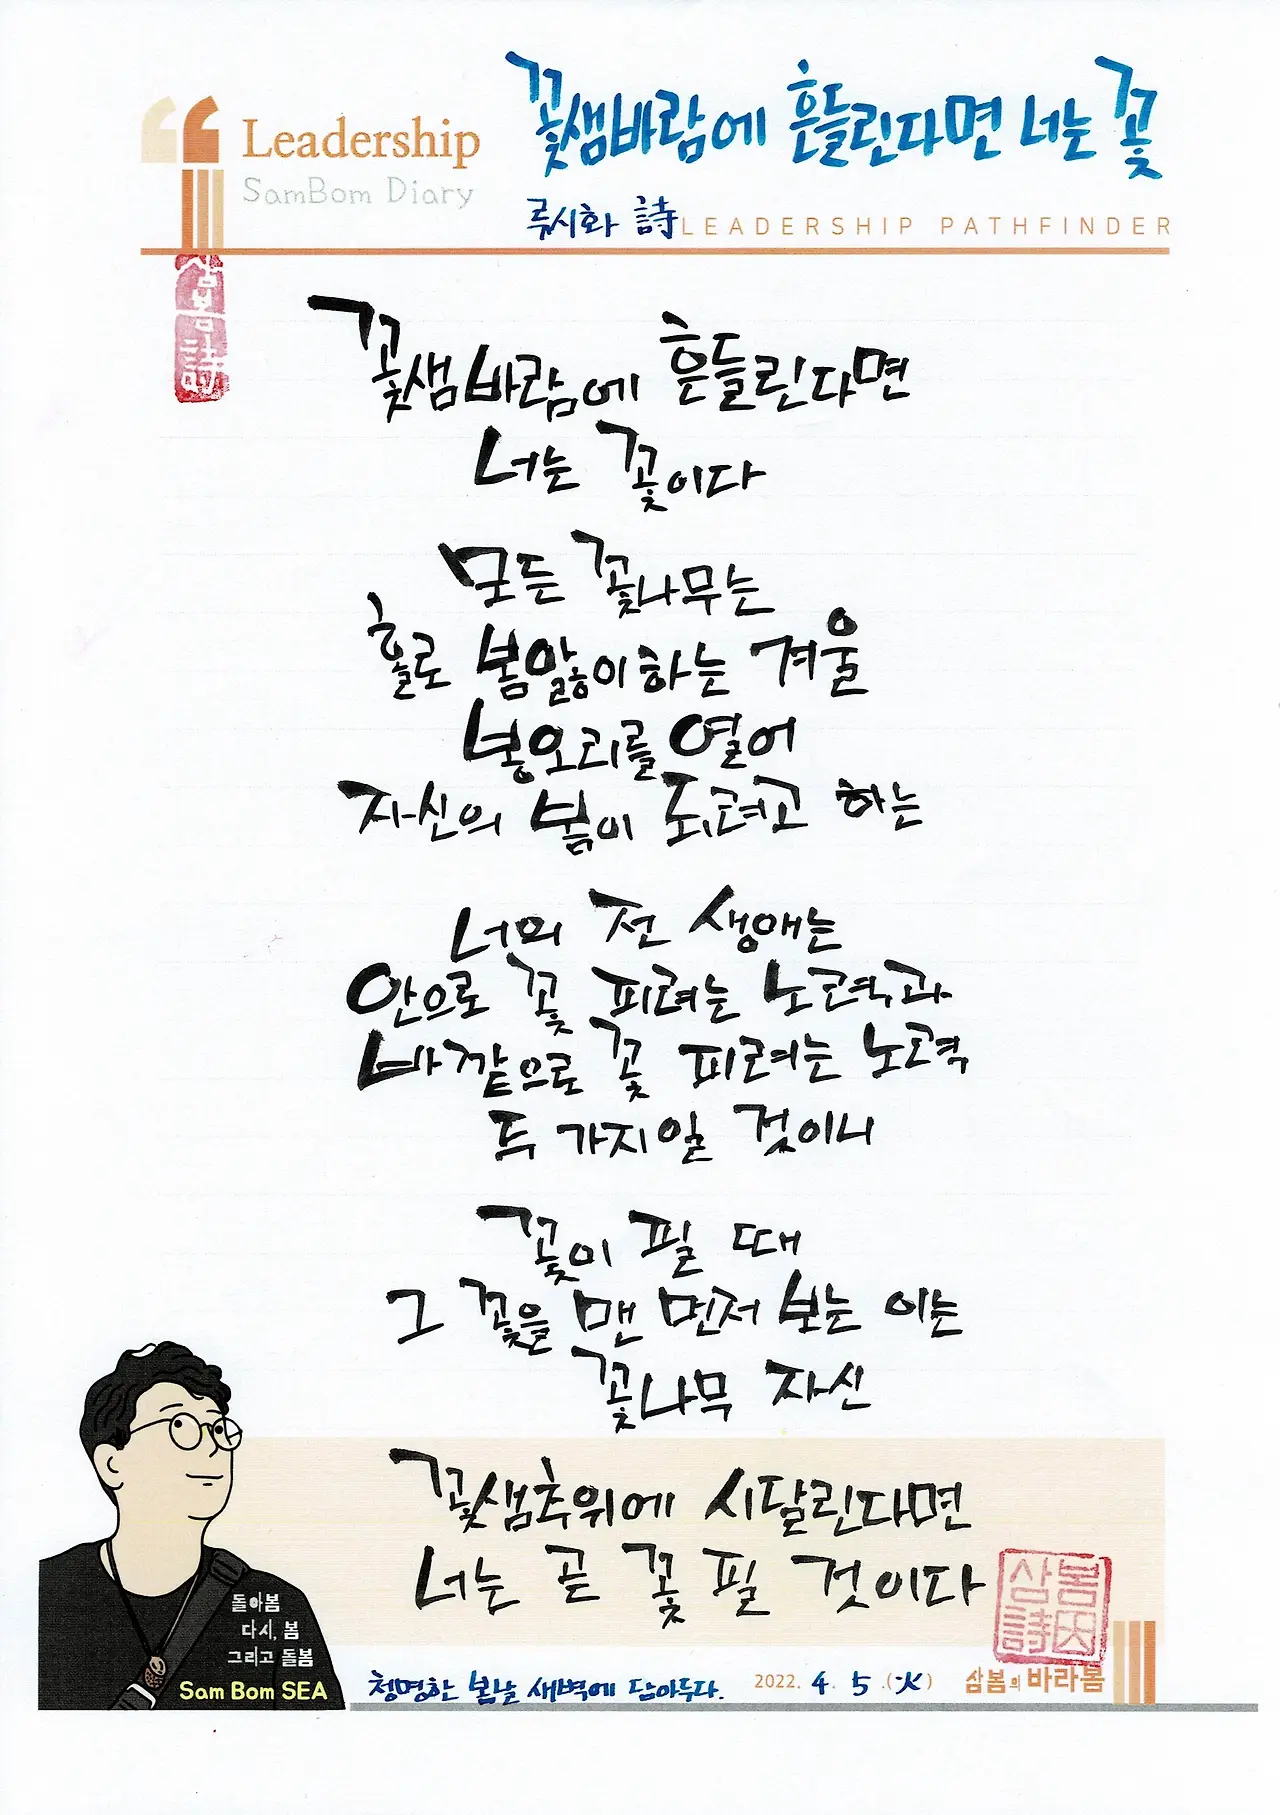 Leadership
SamBom Diary
꽃샘바람에 흔들린다면 너는 꽃
류시화 詩
LEADERSHIP PATHFINDER
삼봄詩
꽃샘바람에 흔들린다면
너는 꽃이다
모든 꽃나무는
홀로 봄앓이하는 겨울
봉오리를 열어
자신의 봄이 되려고 하는
너의 전 생애는
안으로 꽃 피려는 노력과
바깥으로 꽃 피려는 노력
두 가지일 것이니
꽃이 필 때
그 꽃을 맨 먼저 보는 이는
꽃나무 자신
꽃샘추위에 시달린다면
너는 곧 꽃 필 것이다
삼봄
詩因
돌아봄
다시, 봄
그리고 돌봄
Sam Bom SEA
청명한 봄날 새벽에 담아두다.
2022. 4. 5 .(火)
삼봄의 바라봄